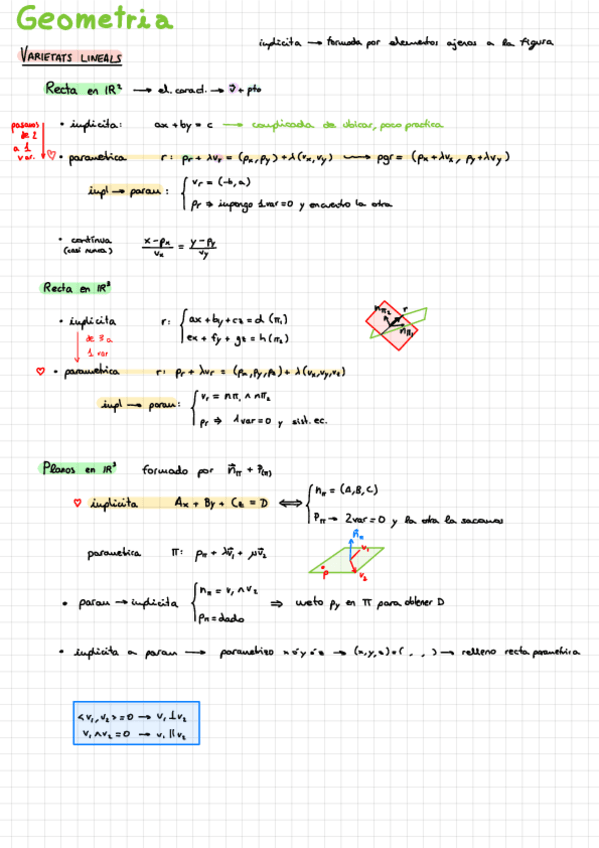 Geometria
implícita → formada por elementos ajenos a la figura
VARIETATS LINEALS
Recta en IR² → el. caract. → v⃗ + pto
• implícita: ax + by = c → complicada de ubicar, poco practica
pasamos de 2 a 1 var.
♡ • parametrica r: pr + λvr = (px, py) + λ(vx, vy) → pgr = (px + λvx, py + λvy)
impl → param: { vr = (-b, a)
pr ⇒ impongo 1 var = 0 y encuentro la otra
• contínua (casi nunca) x - px / vx = y - py / vy
Recta en IR³
• implícita r: { ax + by + cz = d (π₁)
ex + fy + gz = h (π₂)
de 3 a 1 var
nπ₂ r nπ₁
♡ • parametrica r: pr + λvr = (px, py, pz) + λ(vx, vy, vz)
impl → param: { vr = nπ₁ ∧ nπ₂
pr ⇒ 1 var = 0 y sist. ec.
Planos en IR³ formado por n⃗π + P(π)
♡ implícita Ax + By + Cz = D ⟺ { nπ = (A, B, C)
Pπ → 2 var = 0 y la otra la sacamos
parametrica π: pπ + λv⃗₁ + μv⃗₂
n⃗π v₁ v₂ p
• param → implícita { nπ = v₁ ∧ v₂
pπ = dado
⇒ meto py en π para obtener D
• implícita a param → parametrizo x ó y ó z → (x, y, z) = ( , , ) → relleno recta parametrica
<v₁, v₂> = 0 → v₁ ⊥ v₂
v₁ ∧ v₂ = 0 → v₁ ∥ v₂